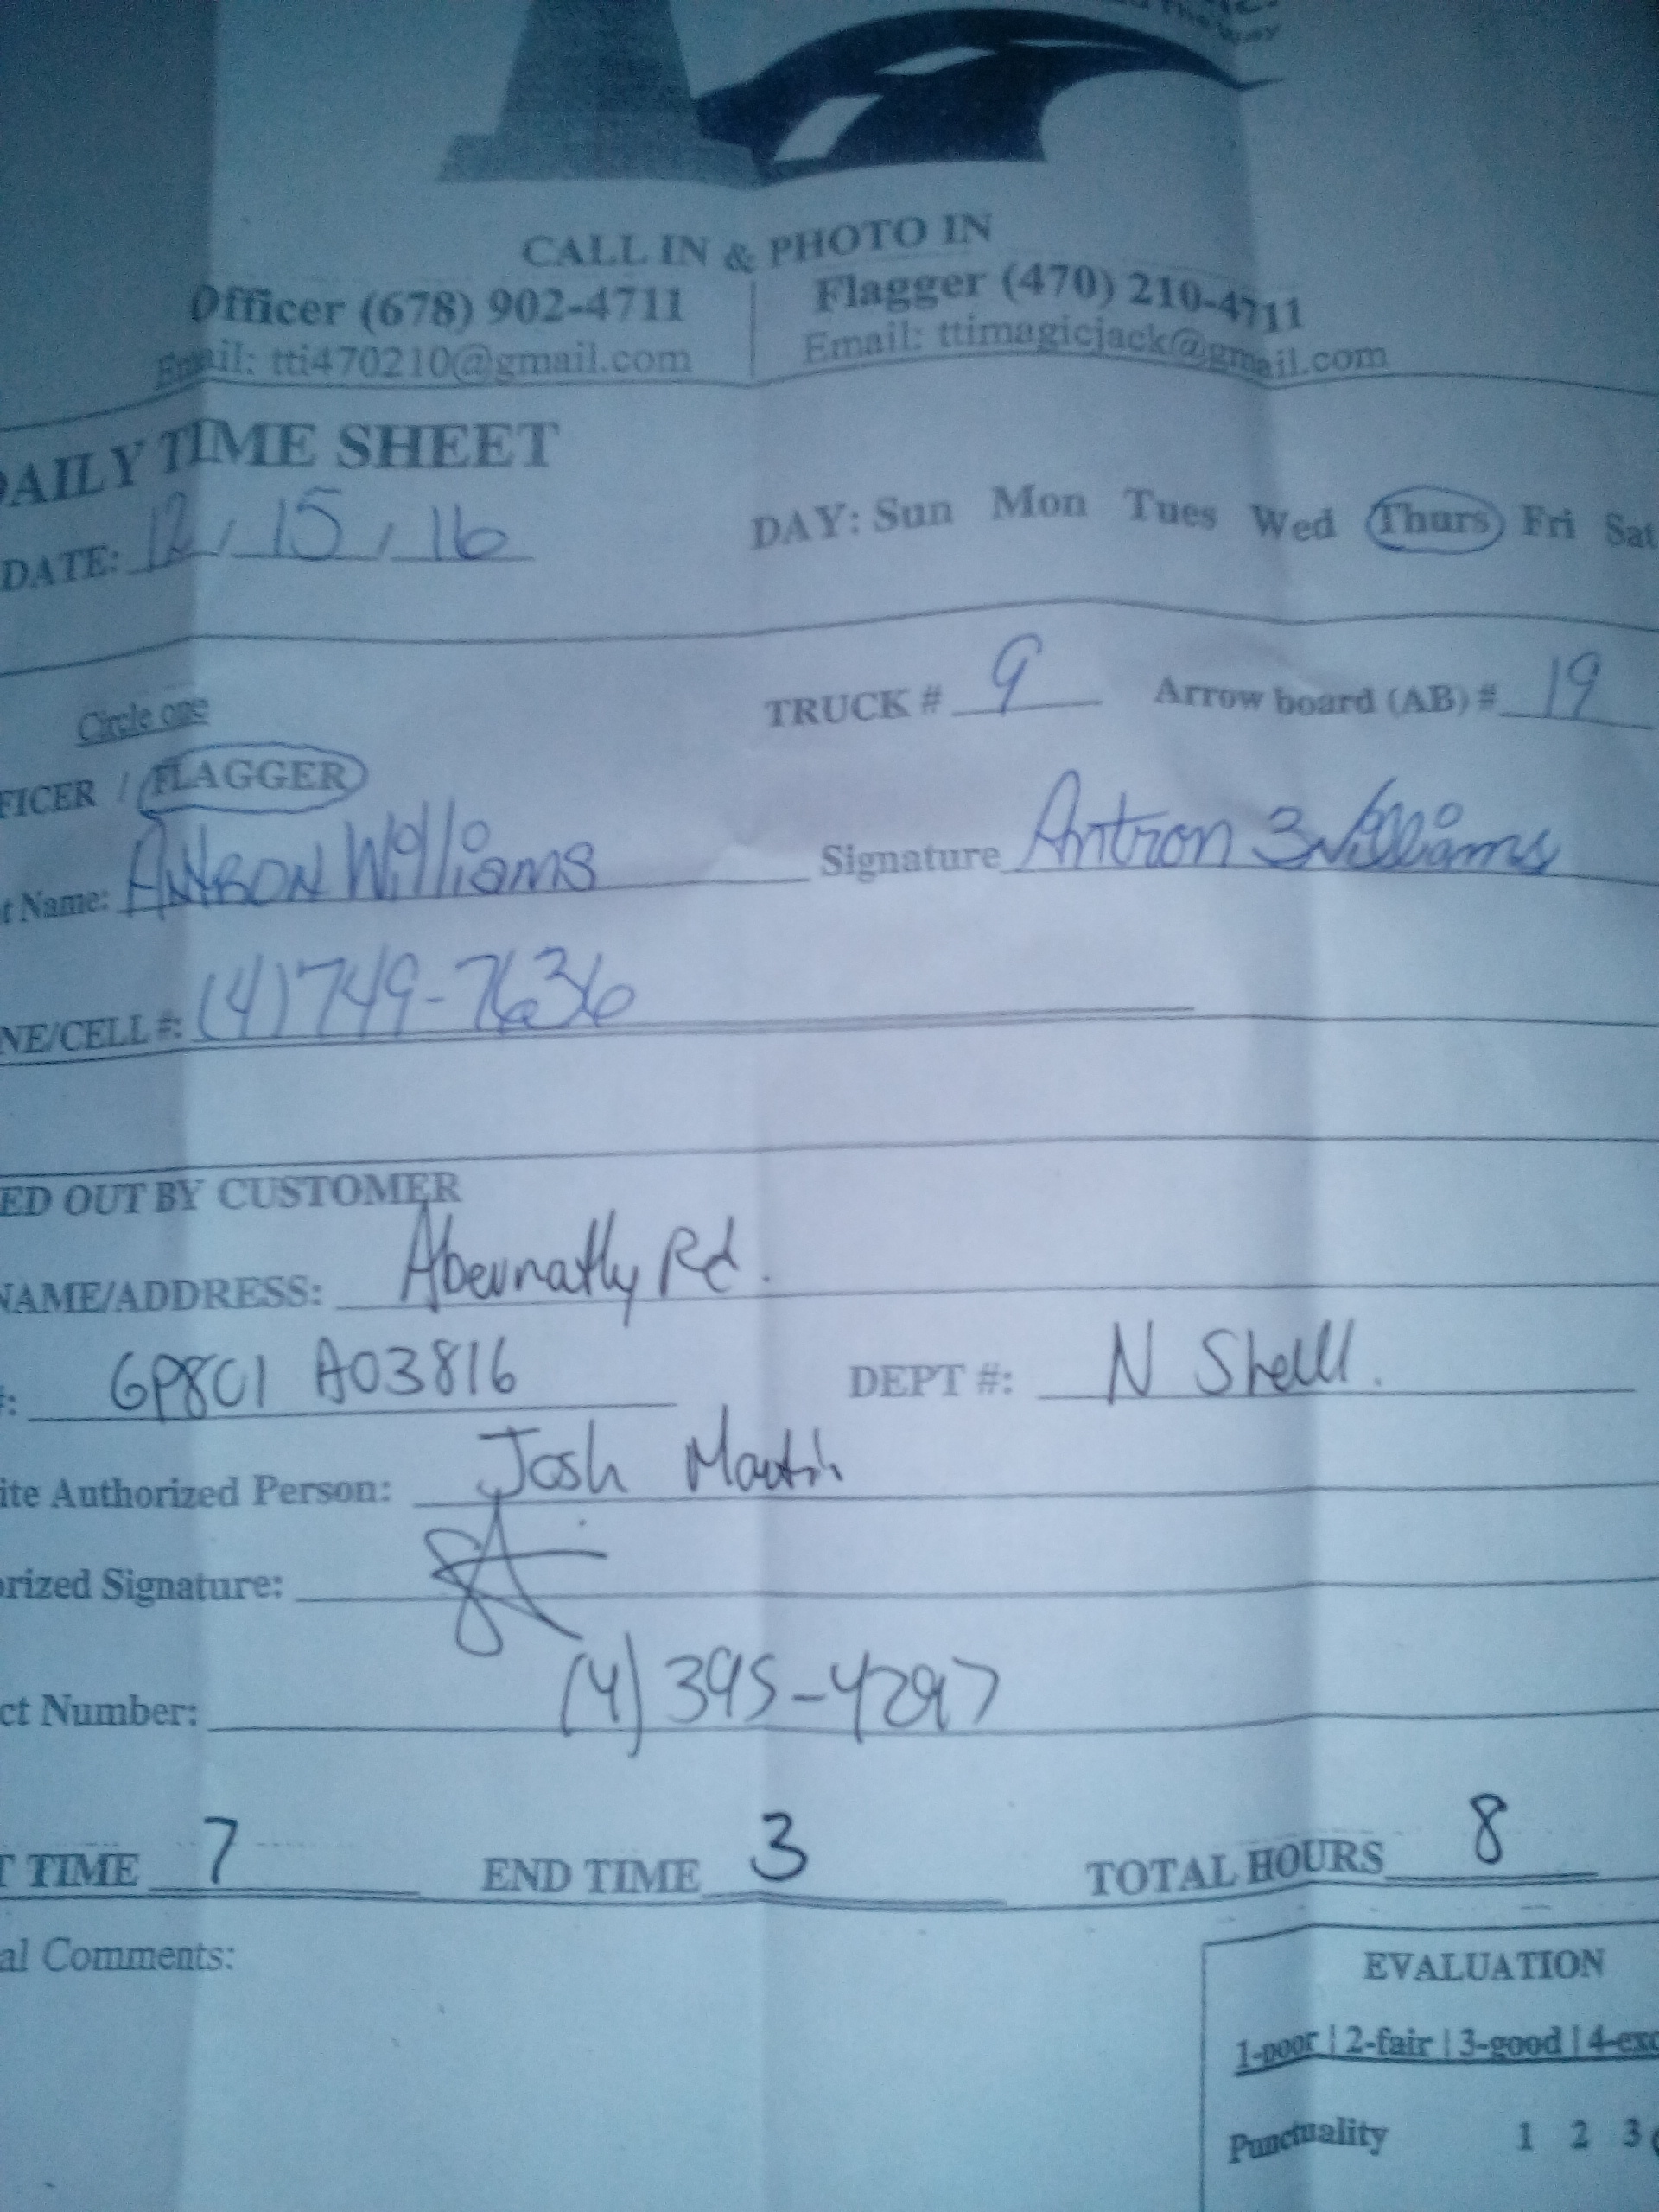 The Way
CALL IN & PHOTO IN
Officer (678) 902-4711 | Flagger (470) 210-4711
Email: tti470210@gmail.com | Email: ttimagicjack@gmail.com
DAILY TIME SHEET
DATE: 12 / 15 / 16 DAY: Sun Mon Tues Wed Thurs Fri Sat
Circle one TRUCK # 9 Arrow board (AB) # 19
FICER / FLAGGER
t Name: Antron Williams Signature Antron Williams
NE/CELL #: (4) 749-7636
ED OUT BY CUSTOMER
NAME/ADDRESS: Abernathy Rd.
#: GP8C1 A03816 DEPT #: N Shell.
ite Authorized Person: Josh Martin
orized Signature:
ct Number: (4) 395-4297
T TIME 7 END TIME 3 TOTAL HOURS 8
al Comments:
EVALUATION
1-poor | 2-fair | 3-good | 4-exc
Punctuality 1 2 3